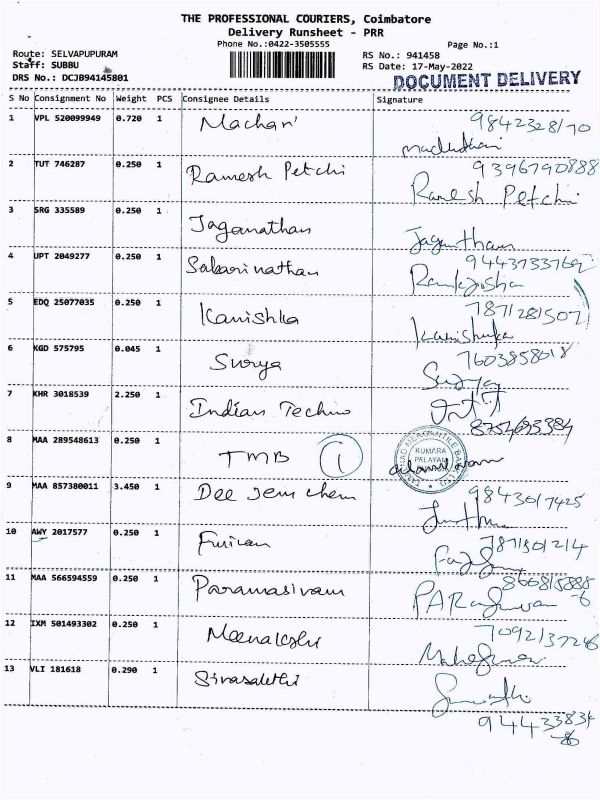 THE PROFESSIONAL COURIERS, Coimbatore
Delivery Runsheet - PRR
Phone No.:0422-3505555
Page No.:1
Route: SELVAPUPURAM
Staff: SUBBU
DRS No.: DCJB94145801
RS No.: 941458
RS Date: 17-May-2022
DOCUMENT DELIVERY
S No Consignment No Weight PCS Consignee Details Signature
1 VPL 520099949 0.720 1 Machari 9842328170
2 TUT 746287 0.250 1 Ramesh Petchi 9396790888
Ramesh Petchi
3 SRG 335589 0.250 1 Jaganathan
4 UPT 2049277 0.250 1 Sabarinathan
5 EDQ 25077035 0.250 1 Kanishka 7871281507
Kanishka
6 KGD 575795 0.045 1 Surya 7603858018
Surya
7 KHR 3018539 2.250 1 Indian Techno
8754693384
8 MAA 289548613 0.250 1 TMB 1
KUMARA
PALAYAM
9 MAA 857380011 3.450 1 Dee Jem chem 9843017425
10 AWY 2017577 0.250 1 7871501214
11 MAA 566594559 0.250 1 Paramasivam
12 IXM 501493302 0.250 1 Meenakshi
13 VLI 181618 0.290 1 Sivasakthi